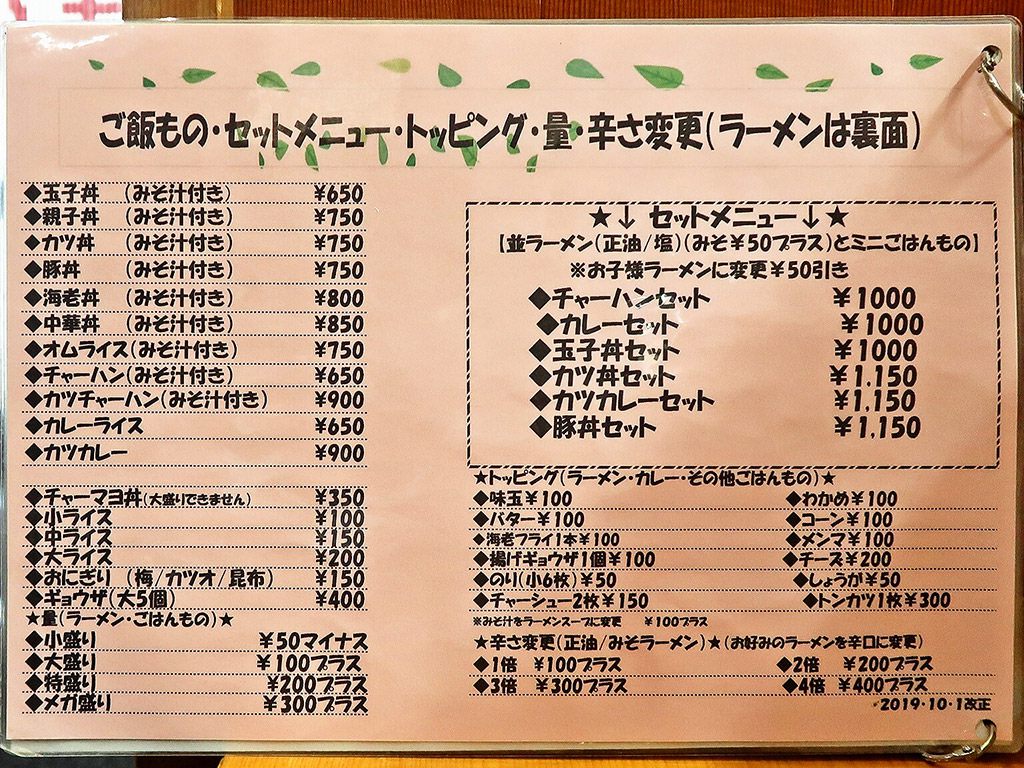 ご飯もの・セットメニュー・トッピング・量・辛さ変更(ラーメンは裏面)
◆玉子丼 (みそ汁付き) ¥650
◆親子丼 (みそ汁付き) ¥750
◆カツ丼 (みそ汁付き) ¥750
◆豚丼 (みそ汁付き) ¥750
◆海老丼 (みそ汁付き) ¥800
◆中華丼 (みそ汁付き) ¥850
◆オムライス(みそ汁付き) ¥750
◆チャーハン(みそ汁付き) ¥650
◆カツチャーハン(みそ汁付き) ¥900
◆カレーライス ¥650
◆カツカレー ¥900
◆チャーマヨ丼(大盛りできません) ¥350
◆小ライス ¥100
◆中ライス ¥150
◆大ライス ¥200
◆おにぎり (梅/カツオ/昆布) ¥150
◆ギョウザ(大5個) ¥400
★量(ラーメン・ごはんもの)★
◆小盛り ¥50マイナス
◆大盛り ¥100プラス
◆特盛り ¥200プラス
◆メガ盛り ¥300プラス
★↓ セットメニュー↓★
【並ラーメン(正油/塩)(みそ¥50プラス)とミニごはんもの】
※お子様ラーメンに変更¥50引き
◆チャーハンセット ¥1000
◆カレーセット ¥1000
◆玉子丼セット ¥1000
◆カツ丼セット ¥1,150
◆カツカレーセット ¥1,150
◆豚丼セット ¥1,150
★トッピング(ラーメン・カレー・その他ごはんもの)★
◆味玉¥100 ◆わかめ¥100
◆バター¥100 ◆コーン¥100
◆海老フライ1本¥100 ◆メンマ¥100
◆揚げギョウザ1個¥100 ◆チーズ¥200
◆のり(小6枚)¥50 ◆しょうが¥50
◆チャーシュー2枚¥150 ◆トンカツ1枚¥300
※みそ汁をラーメンスープに変更 ¥100プラス
★辛さ変更(正油/みそラーメン)★(お好みのラーメンを辛口に変更)
◆1倍 ¥100プラス ◆2倍 ¥200プラス
◆3倍 ¥300プラス ◆4倍 ¥400プラス
2019・10・1改正